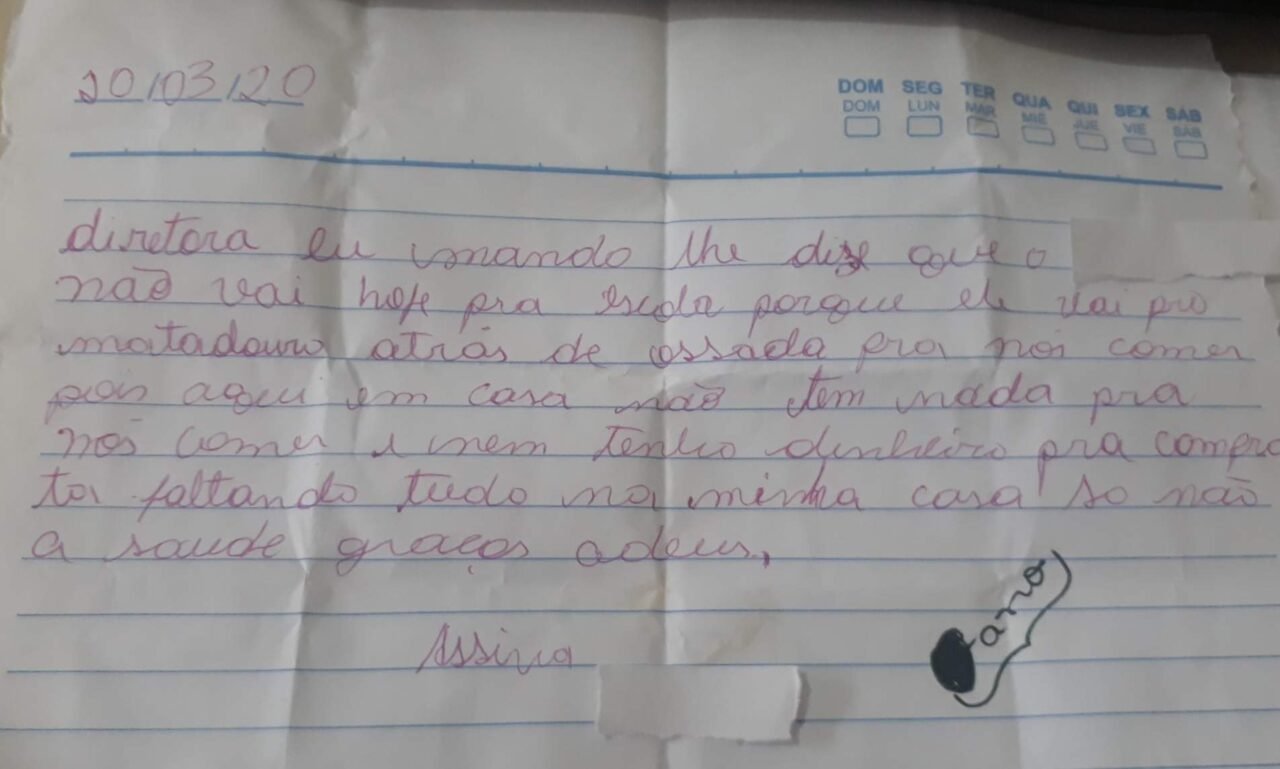 20/03/20
DOM SEG TER QUA QUI SEX SÁB
DOM LUN MAR MIÉ JUE VIE SÁB
diretora eu mando lhe dize que o
não vai hoje pra escola porque ele vai pro
matadouro atrás de ossada pra nós comer
pois aqui em casa não tem nada pra
nós comer e nem tenho dinheiro pra compra
toi faltando tudo na minha casa so não
a saude graços adeus,
ano
Assina